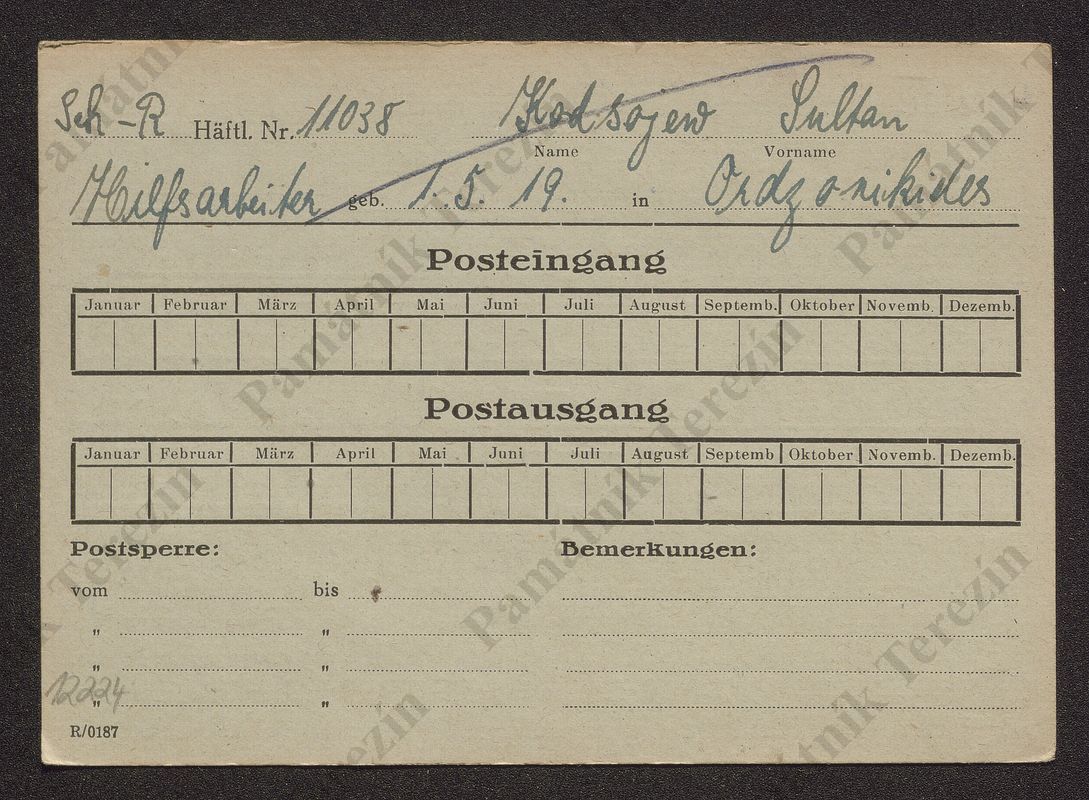 Sch-R Häftl. Nr. 11038 Kodsojew Sultan
Name Vorname
Hilfsarbeiter geb. 1. 5. 19. in Ordzonikides
Posteingang
Januar Februar März April Mai Juni Juli August Septemb. Oktober Novemb. Dezemb.
Postausgang
Januar Februar März April Mai Juni Juli August Septemb Oktober Novemb. Dezemb.
Postsperre: Bemerkungen:
vom bis
„ „
„ „
12224 „ „
R/0187
Památník Terezín